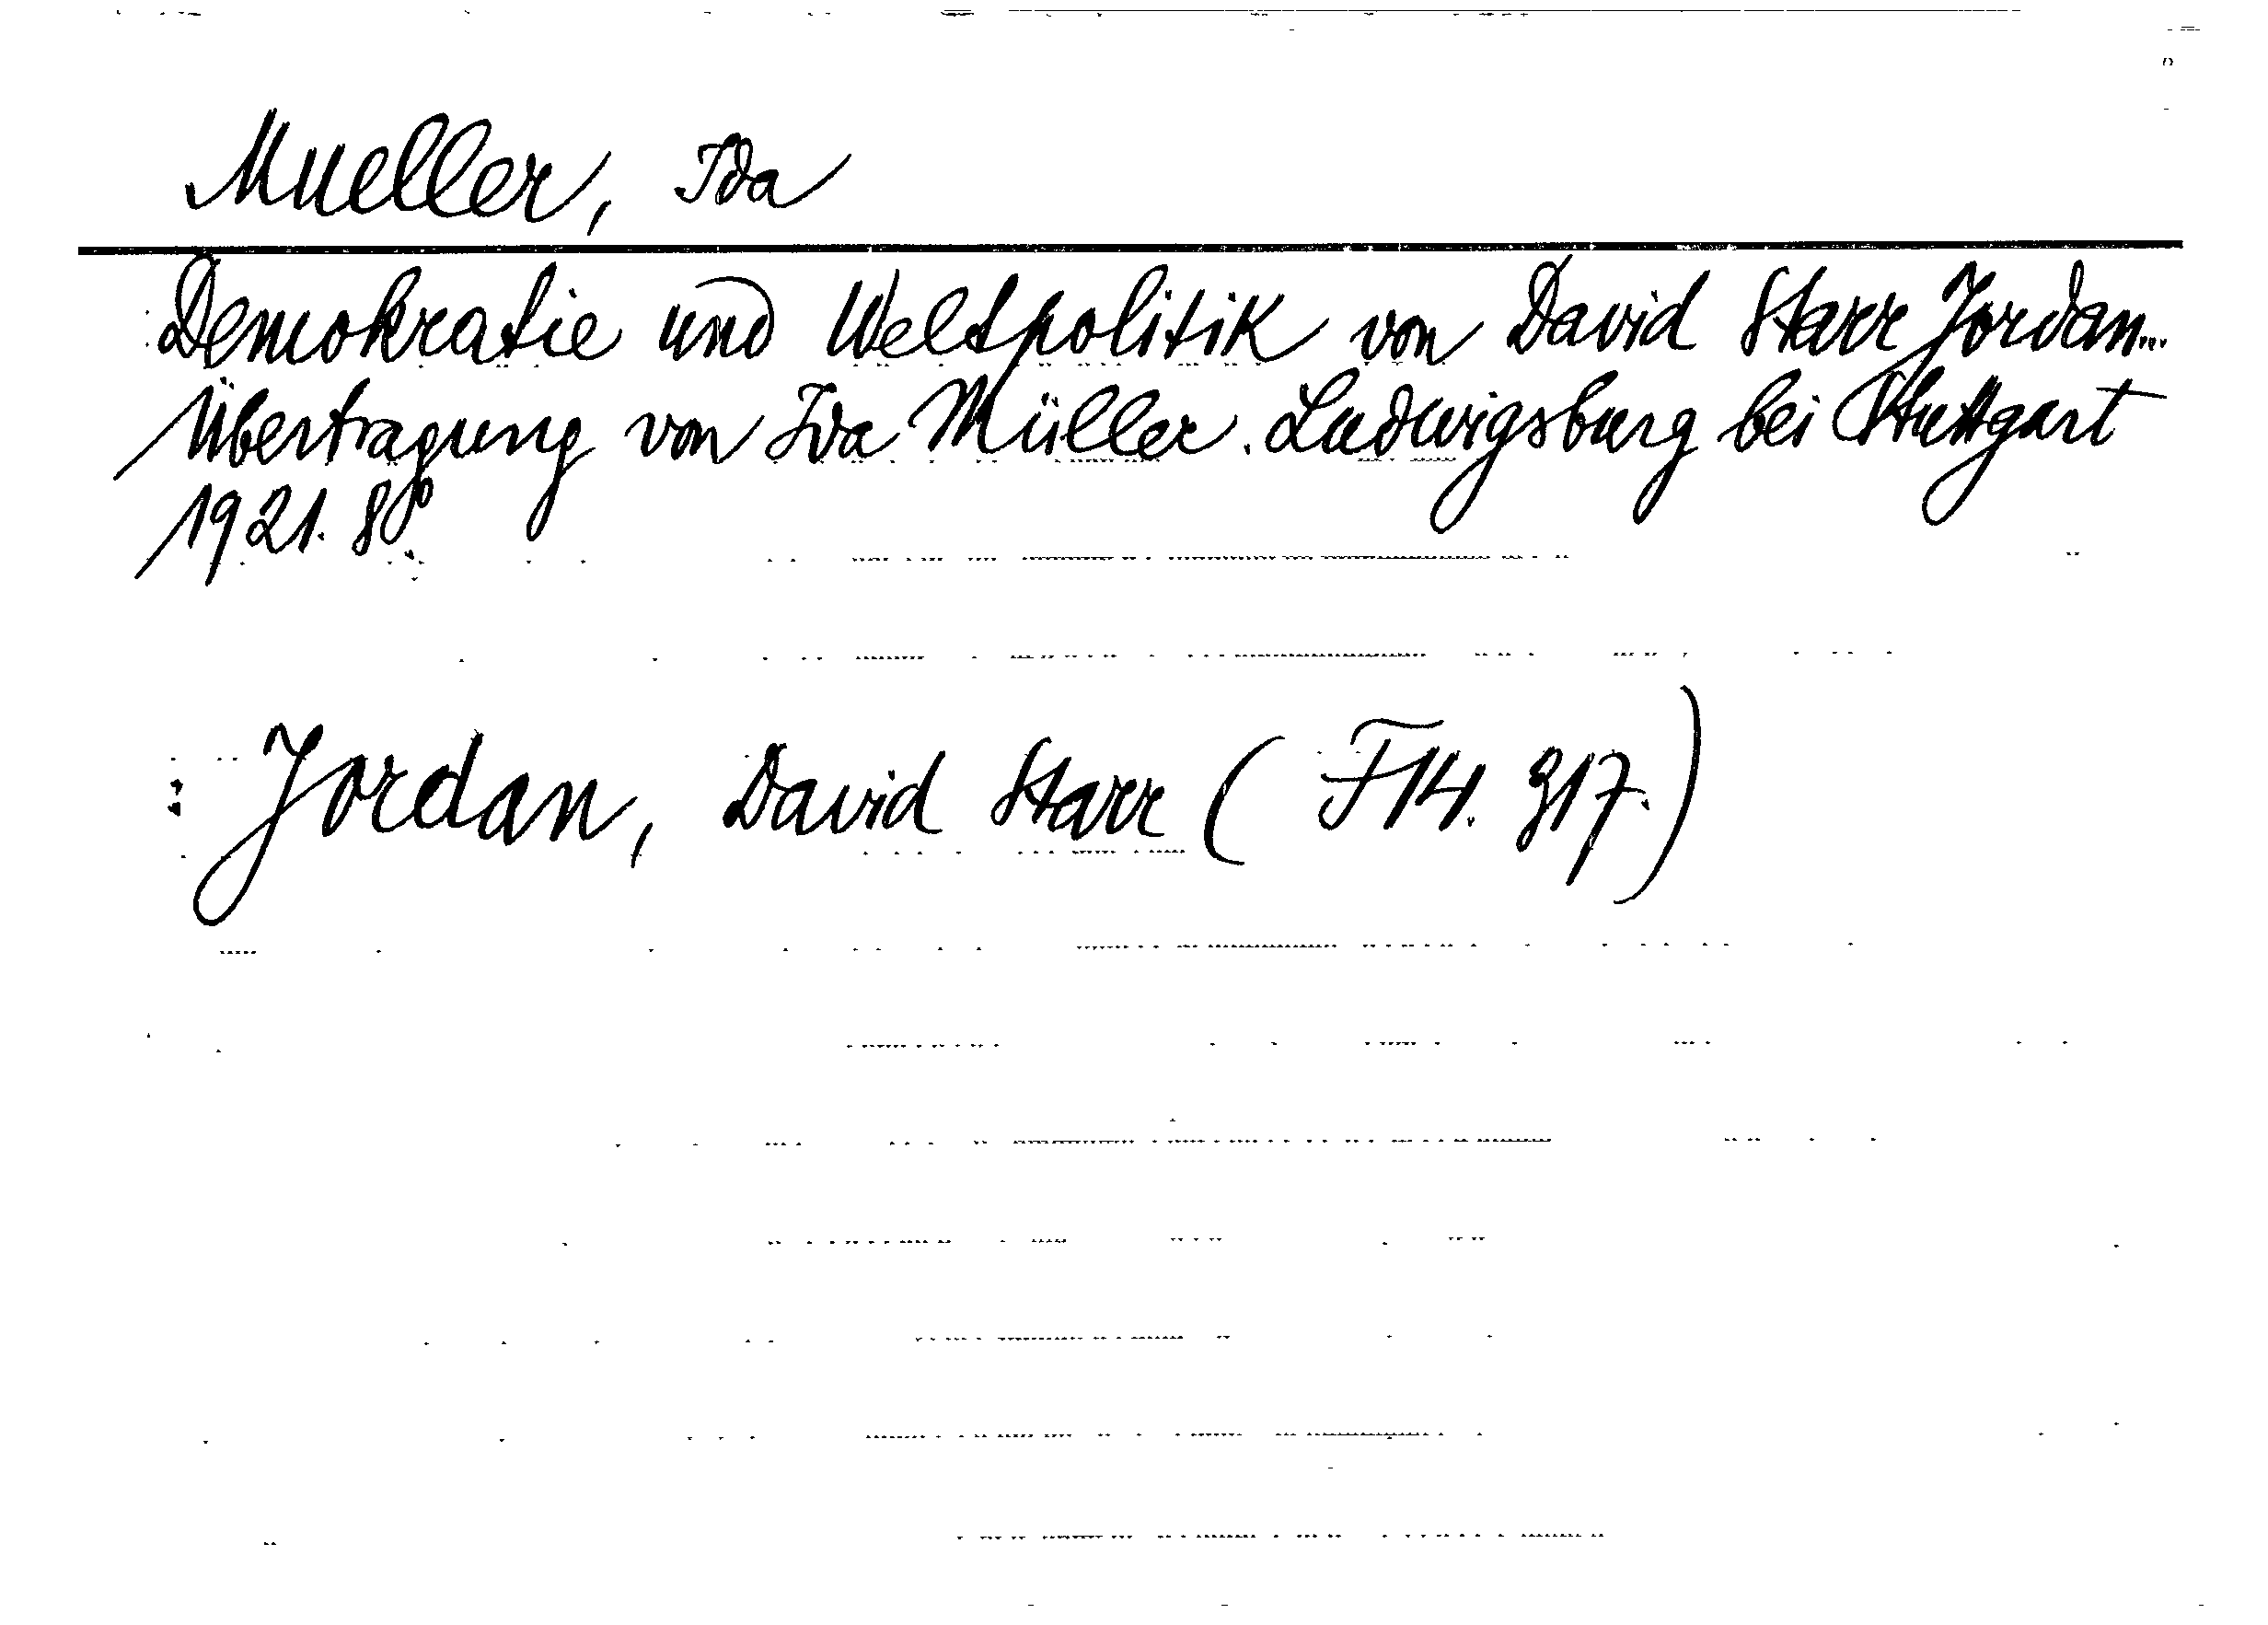 Mueller, Ida
Demokratie und Weltpolitik von David Starr Jordan...
Übertragung von Ida Müller. Ludwigsburg bei Stuttgart
1921. 8°
Jordan, David Starr (F14. 917.)